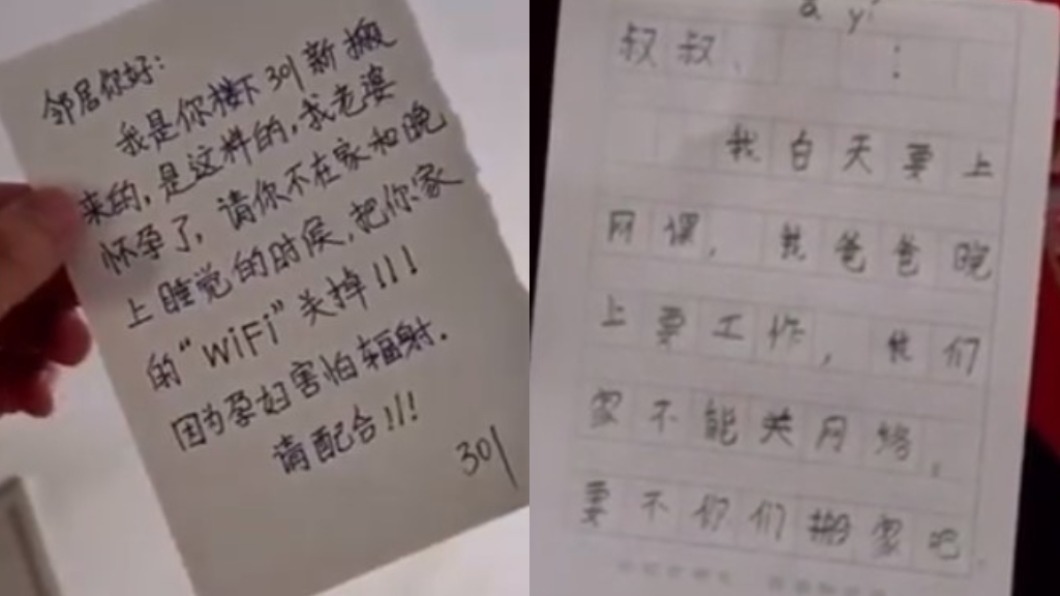 邻居你好：
我是你楼下301新搬
来的，是这样的，我老婆
怀孕了，请你不在家和晚
上睡觉的时候，把你家
的“WiFi”关掉！！！
因为孕妇害怕辐射.
请配合！！！
301
a yí
叔叔、：
我白天要上
网课，我爸爸晚
上要工作，我们
家不能关网络，
要不你们搬家吧.